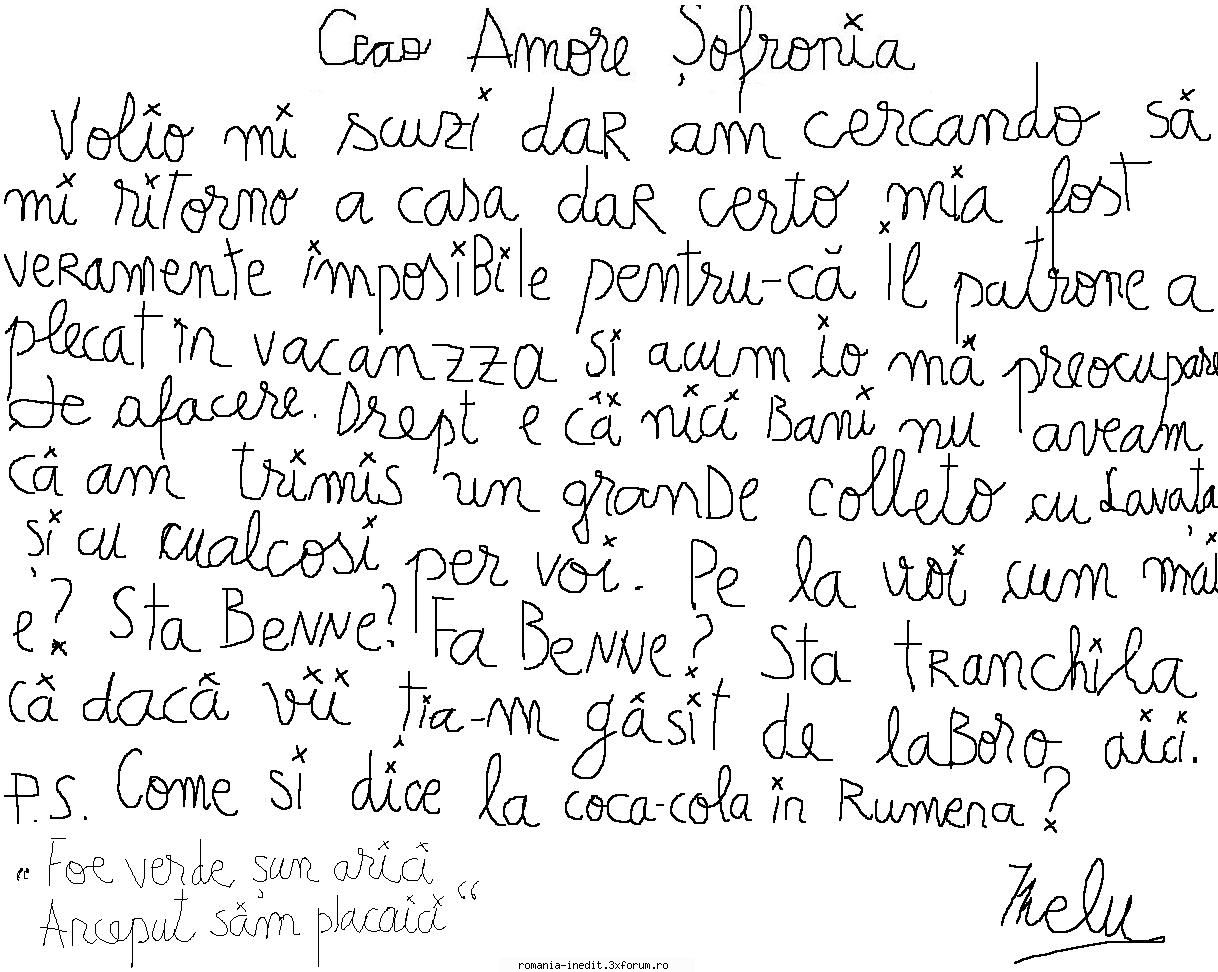 Ceao Amore Șofronia
Volio mi scuzi daR am cercando să
mi ritorno a casa daR certo mia fost
veRamente imposiBile pentru-că il patrone a
plecat in vacanzza si acum io mă preocupare
de afacere. Drept e că nici Bani nu aveam
că am trimis un granDe colleto cu Lavata
și cu cualcosi per voi. Pe la voi cum mai
e? Sta BeNNe? Fa BeNNe? Sta tRanchila
că dacă vii ția-m găsit de laBoro aici.
P.S. Come si dice la coca-cola in Rumena?
„Foe verde șun arici
Anceput săm placaici“
Nelu
romania-inedit.3xforum.ro